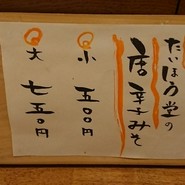 たいほう堂の
唐辛子みそ
小 五〇〇円
大 七五〇円